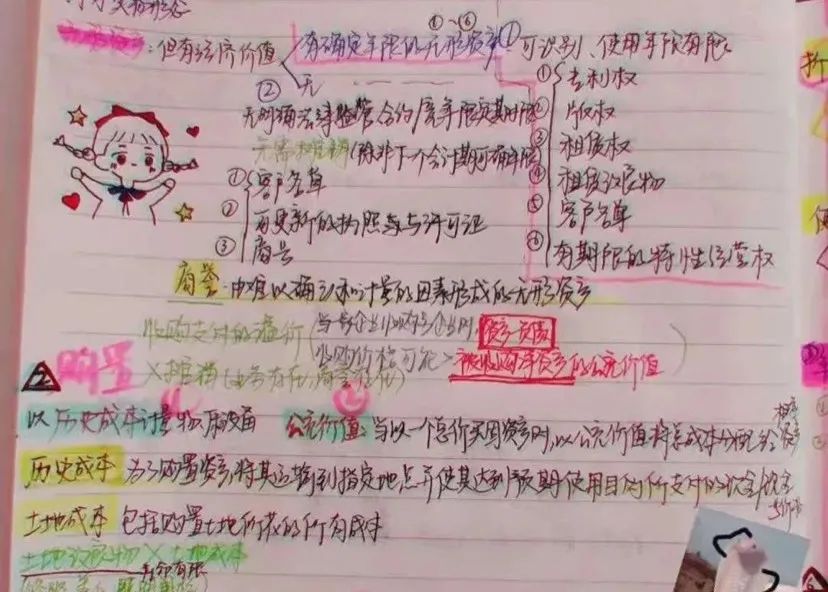 但有经济价值
有确定年限的无形资产 ① 可识别、使用年限有限
①~⑥
② 无
① 专利权
② 版权
③ 租赁权
④ 租赁改良物
⑤ 客户名单
⑥ 有期限的特许经营权
无明确法律监管合约/寿年限定期限
无需摊销(除非下一个会计期可确年限
① 客户名单
② 可更新的执照与许可证
③ 商号
商誉:由难以确认和计量的因素形成的无形资产
收购支付的溢价(当一家企业收购另一企业时, 资产-负债
收购价格可能>被收购净资产的公允价值)
×摊销(
2 购置
以历史成本计量
公允价值:当以一个总价买因资产时,以公允价值将总成本分配给 资产
历史成本 为了购置资产,将其运输到指定地点并使其达到预期使用目的所支付的现金/现金
等价物
土地成本 包括购置土地所花的所有成本
土地改良物 × 土地成本
寿命有限